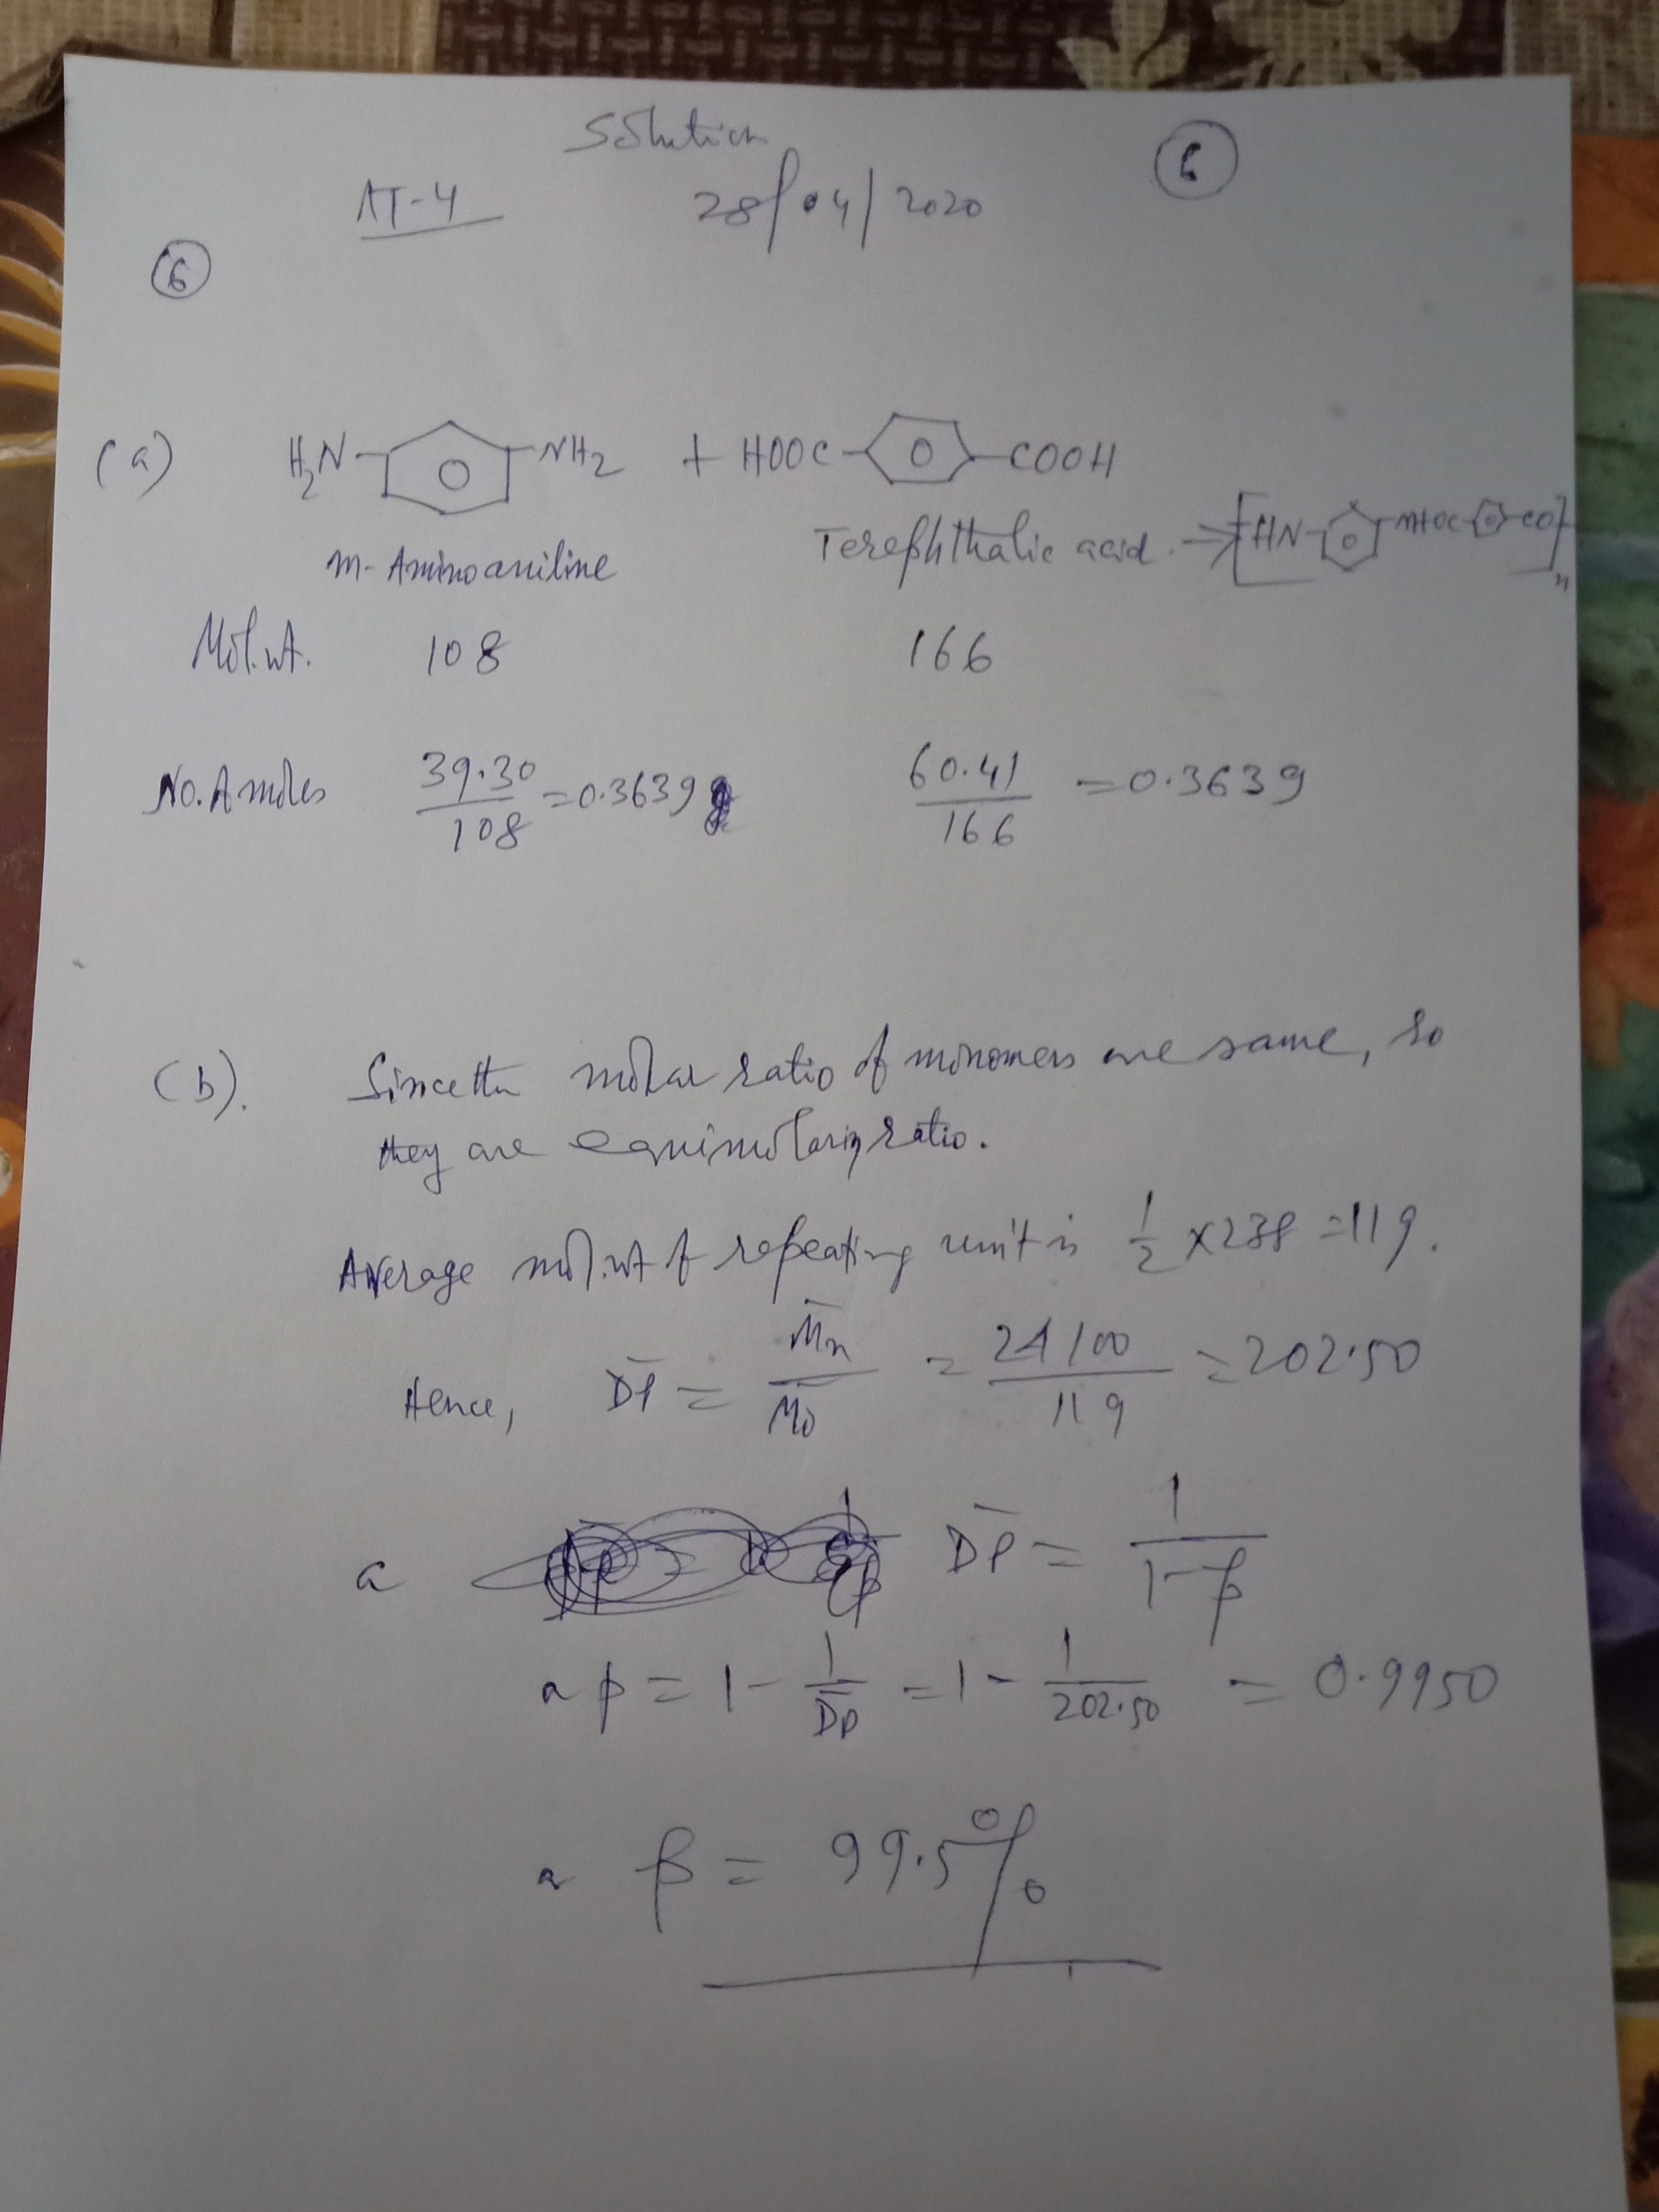 Solution
6
AT-4 28/04/2020
6
(a) H2N- -NH2 + HOOC- -COOH
m-Aminoaniline Terephthalic acid. → [HN- -NHOC- -CO]n
Mol.wt. 108 166
No. of moles 39.30/108 = 0.3639 60.41/166 = 0.3639
(b). Since the molar ratio of monomers are same, so
they are equimolar in ratio.
Average mol.wt of repeating unit is 1/2 × 238 = 119.
Hence, D̄P = M̄n/M̄o = 24100/119 = 202.50
D̄P = 1/(1-p)
p = 1 - 1/D̄P = 1 - 1/202.50 = 0.9950
p = 99.5%